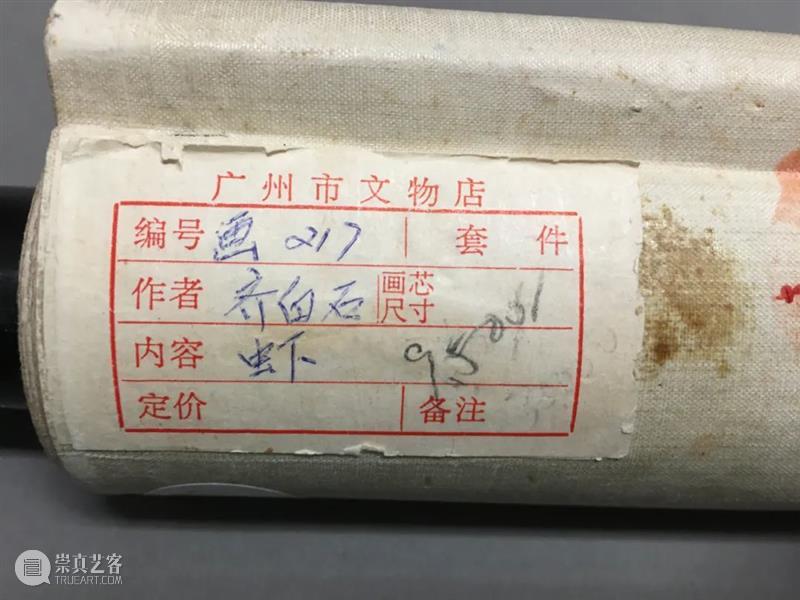 广州市文物店
编号 画 217 套 件
作者 齐白石 画芯尺寸
内容 虫下
定价 备注
崇真艺客
TRUEART.COM